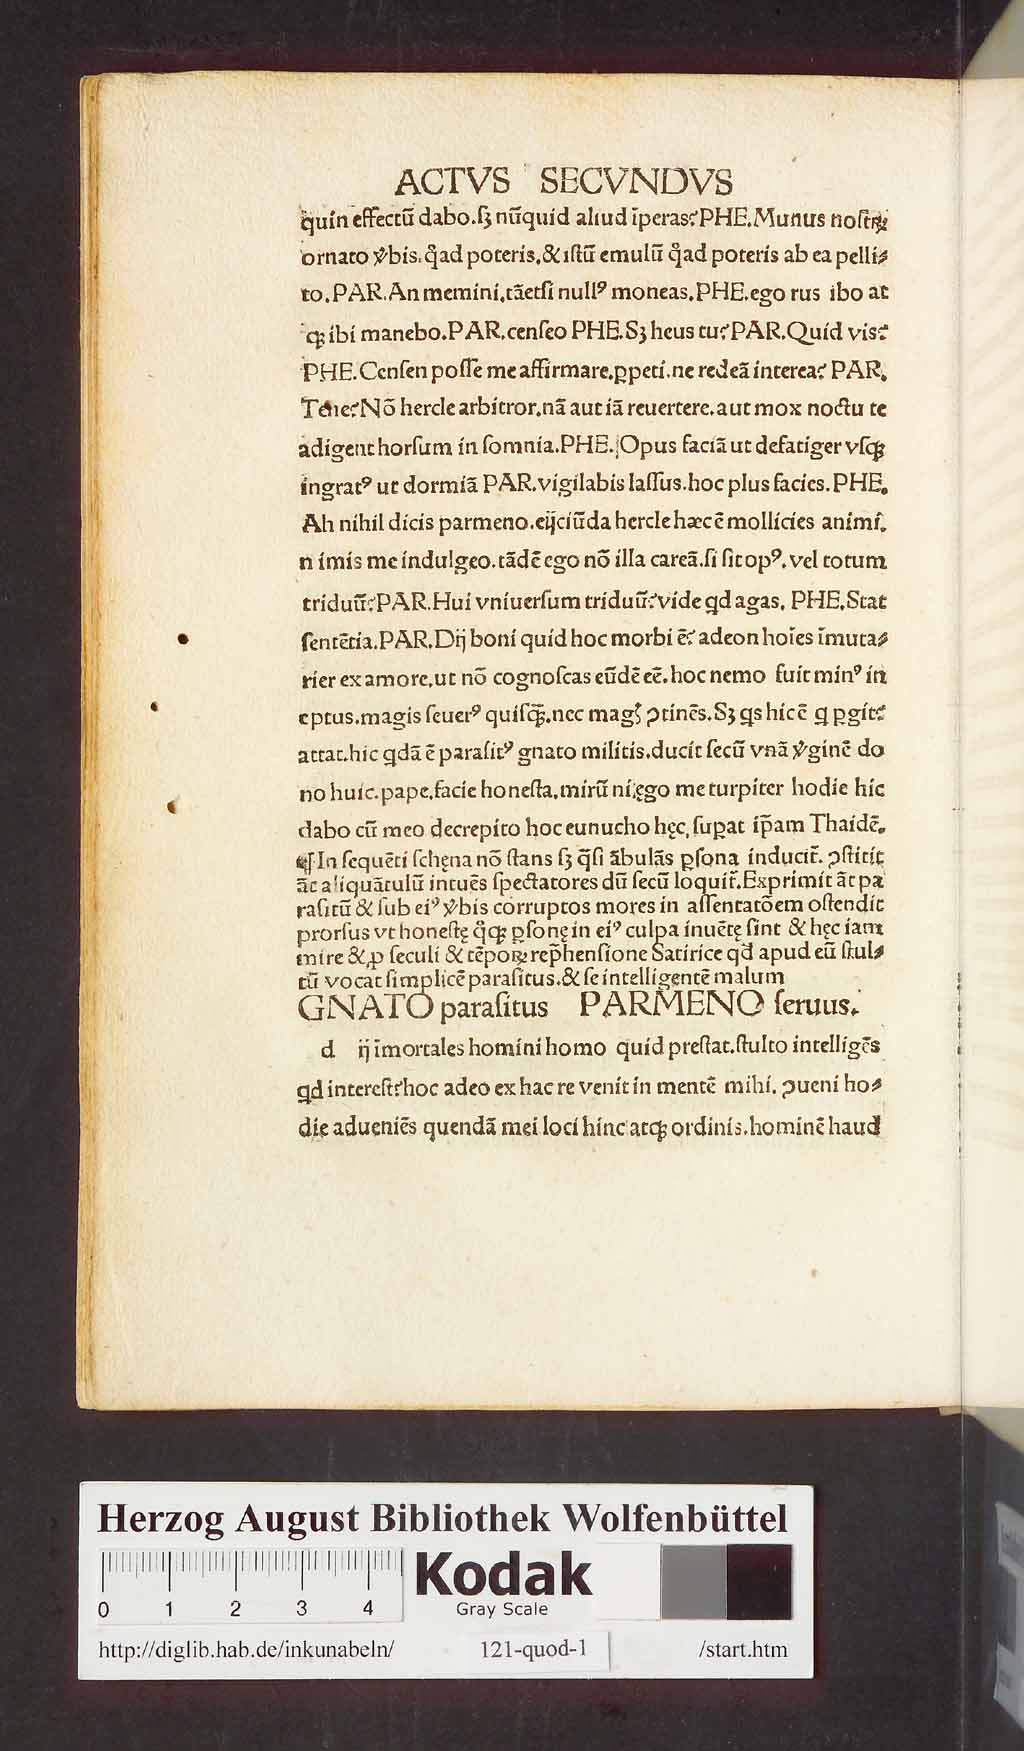 ACTVS SECVNDVS
quin effectū dabo.sꝫ nūquid aliud īperas? PHE.Munus nostꝝ
ornato v̾bis.qͦad poteris.&istū emulū qͦad poteris ab ea pelli⸗
to.PAR.An memini.tāetsi nullꝰ moneas.PHE.ego rus ibo at
qꝫ ibi manebo.PAR.censeo PHE.Sꝫ heus tu? PAR.Quid vis?
PHE.Censen posse me affirmare.ꝑpeti.ne redeā interea? PAR.
Tene? Nō hercle arbitror.nā aut iā reuertere.aut mox noctu te
adigent horsum in somnia.PHE.Opus faciā ut defatiger vsqꝫ
ingratꝰ ut dormiā PAR.vigilabis lassus.hoc plus facies.PHE.
Ah nihil dicis parmeno.eijciūda hercle hæc ē mollicies animi.
n imis me indulgeo.tādē ego nō illa careā.si sit opꝰ.vel totum
triduū? PAR.Hui vniuersum triduū? vide qd agas. PHE.Stat
sentētia.PAR.Dij boni quid hoc morbi ē? adeon hoīes īmuta⸗
rier ex amore.ut nō cognoscas eūdē eē.hoc nemo fuit minꝰ in
eptus.magis seuerꝰ quisqꝫ.nec mag ꝯtinēs.Sꝫ qs hic ē q ꝑgit?
attat.hic qdā ē parasitꝰ gnato militis.ducit secū vnā v̾ginē do
no huic.pape.facie honesta.mirū ni.ęgo me turpiter hodie hic
dabo cū meo decrepito hoc eunucho hęc.suꝑat īpam Thaidē.
¶In sequēti schęna nō stans sꝫ q̄si ābulās ꝑsona inducit̄. ꝯstitit
āt aliquātulū intuēs spectatores dū secū loquit̄.Exprimit āt pa
rasitū & sub eiꝰ v̾bis corruptos mores in assentatōem ostendit
prorsus vt honestę qͦqꝫ ꝑsonę in eiꝰ culpa inuētę sint & hęc iam
mire & ꝓ seculi & tēpoꝝ rep̄hensione Satirice qd̄ apud eū stul⸗
tū vocat simplicē parasitus.& se intelligentē malum
GNATO parasitus PARMENO seruus.
d ij īmortales homini homo quid prestat.stulto intelligēs
qd interest? hoc adeo ex hac re venit in mentē mihi. ꝯueni ho⸗
die adueniēs quendā mei loci hinc atqꝫ ordinis.hominē haud
Herzog August Bibliothek Wolfenbüttel
0 1 2 3 4
Kodak
Gray Scale
http://diglib.hab.de/inkunabeln/ 121-quod-1 /start.htm